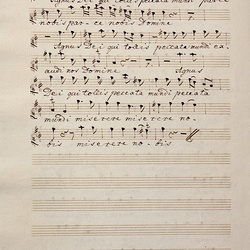 Agnus Dei qui tollis peccata mundi parce
nobis par-ce nobis Domine
Agnus Dei qui tollis peccata mundi ex
audi nos Domine Agnus
Dei qui tollis peccata mundi peccata
mundi miserere miserere no-
bis miserere no- bis